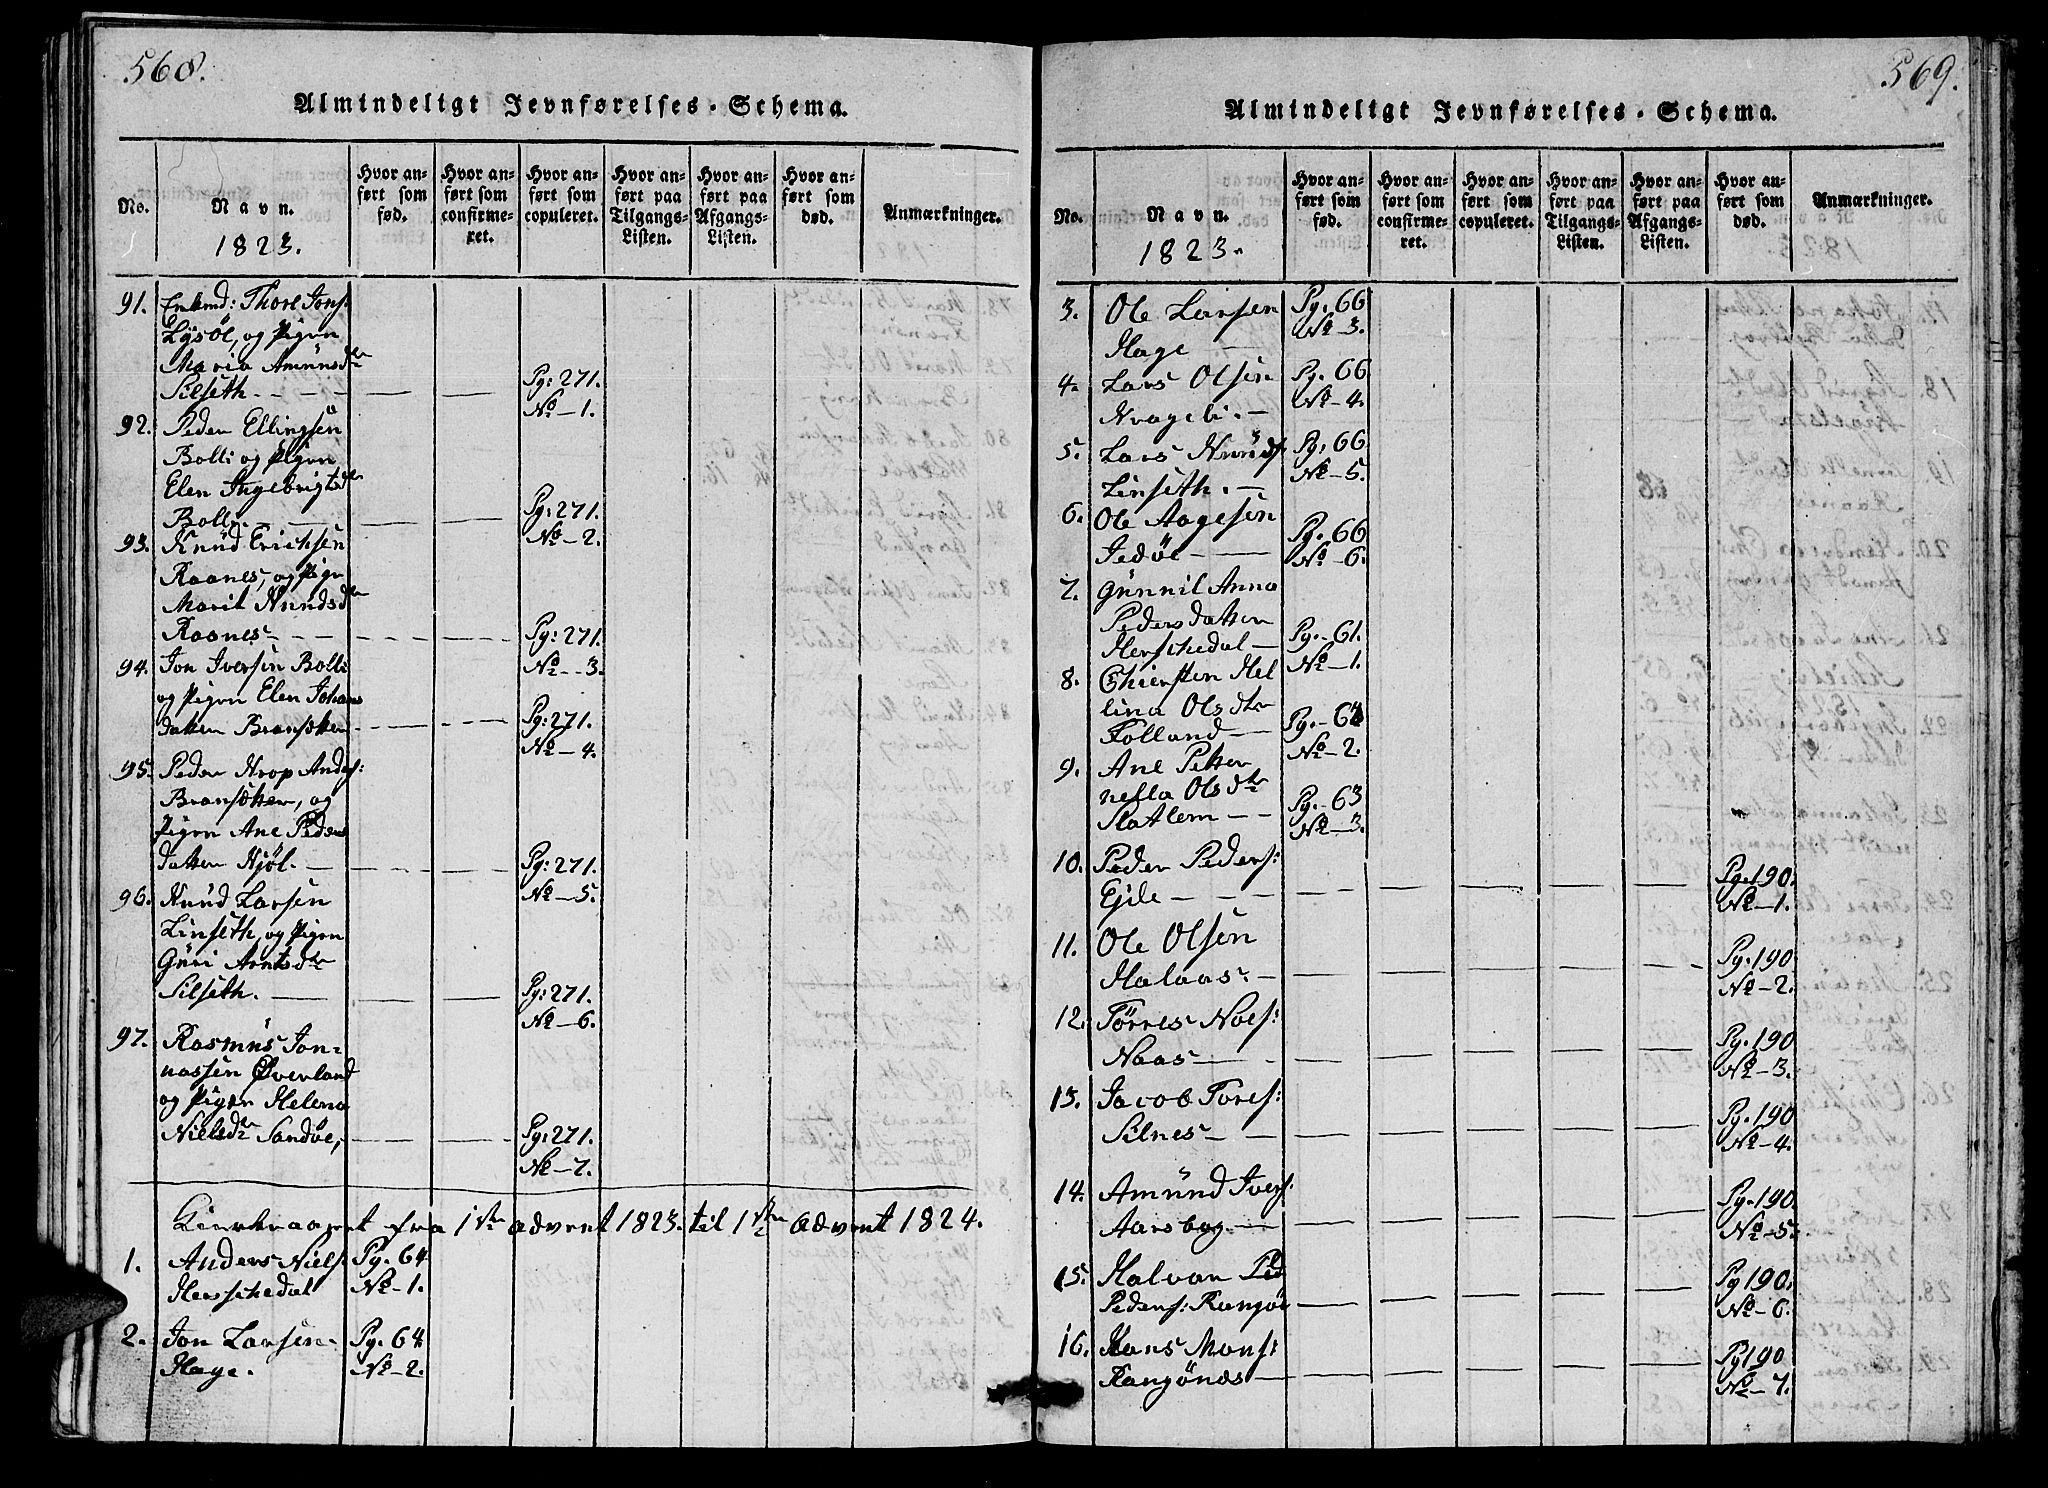 568.
Almindeligt Jevnførelses-Schema.
No.
Navn.
1823.
Hvor anført som fød.
Hvor anført som confirmeret.
Hvor anført som copuleret.
Hvor anført paa Tilgangs-Listen.
Hvor anført paa Afgangs-Listen.
Hvor anført som død.
Anmærkninger.
91. Enkmd: Thore Jons:
Lysöe, og Pigen
Maria Amundsdtr
Silseth. Pg: 271.
No-1.
92. Peder Ellingsen
Bolli og Pigen
Elen Ingebrigtsdtr
Bolli Pg: 271.
No-2.
93. Knud Ericksen
Raanes, og Pign
Marit Knudsdtr
Raanes Pg: 271.
No--3.
94. Jon Iversen Bolli
og Pigen Elen Johans
datter Bransæter Pg: 271.
No-4.
95. Peder Krop Anders:
Bransæter, og
Pigen Ane Peders
datter Kjöl. Pg: 271.
No-5.
96. Knud Larsen
Linseth, og Pigen
Guri Arntsdtr
Silseth. Pg: 271.
No-6.
97. Rasmus Jon-
nassen Øverland
og Pigen Helena
Nielsdtr Sandöe, Pg: 271.
No-7.
Kirkeaaret fra 1ste Advent 1823. til 1ste Advent 1824.
1. Anders Niels: Pg. 64
Herschedal No-1.
2. Jon Larsen Pg. 64
Hage. No-2.
569.
Almindeligt Jevnførelses-Schema.
No.
Navn.
1823.
Hvor anført som fød.
Hvor anført som confirmeret.
Hvor anført som copuleret.
Hvor anført paa Tilgangs-Listen.
Hvor anført paa Afgangs-Listen.
Hvor anført som død.
Anmærkninger.
3. Ole Larsen Pg. 66
Hage No-3.
4. Lars Olsen Pg. 66
No-4.
5. Lars Knuds: Pg. 66
Linseth. No-5.
6. Ole Aagesen Pg. 66
Jedöe No-6.
7. Gunnil Anna
Pedersdatter
Herschedal Pg.-61.
No-1.
8. Chiersten Hel
lina Olsdtr
Folland Pg.-62
No-2.
9. Ane Petter
nella Olsdtr
Slatlem Pg.-63
No-3.
10. Peder Peders:
Ejde Pg. 190.
No-1.
11. Ole Olsen
Halaas Pg. 190
No-2.
12. Törres Noes:
Naas Pg. 190
No-3.
13. Jacob Tores:
Silnes Pg. 190
No-4.
14. Amund Ivers:
Aarsbog Pg. 190
No-5.
15. Halvar Ped
Peders: Rangöe Pg 190.
No-6.
16. Hans Mons:
Rangönes Pg 190
No-7.